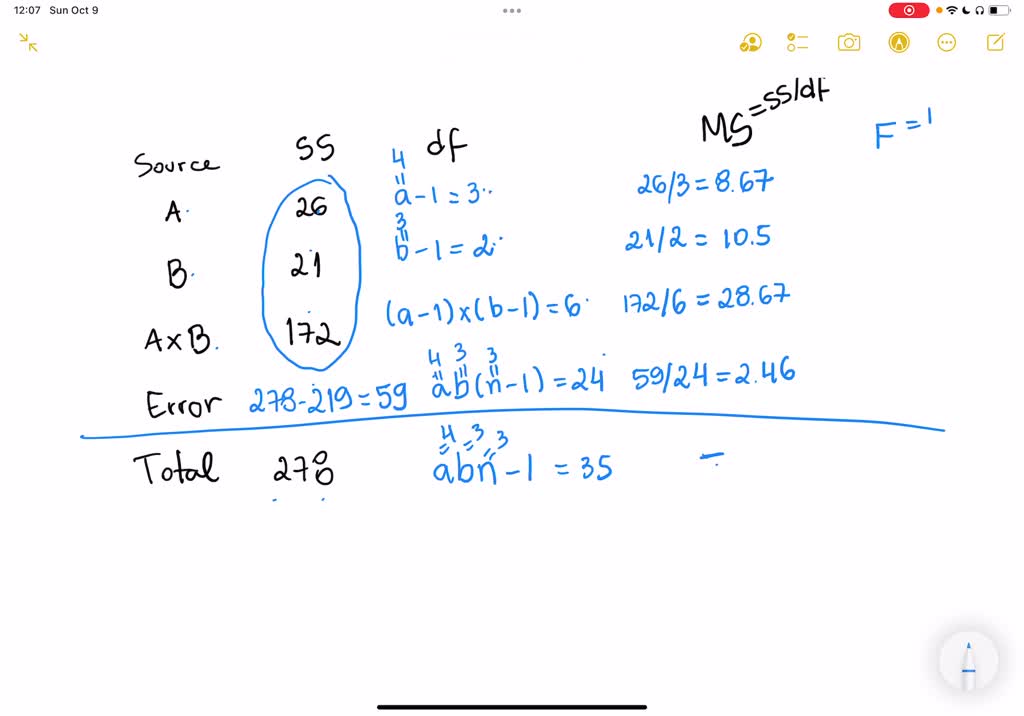 12:07 Sun Oct 9
Source SS df MS = SS/df F = 1
A 26 4 = a - 1 = 3 26/3 = 8.67
B 21 3 = b - 1 = 2 21/2 = 10.5
A x B 172 (a-1) x (b-1) = 6 172/6 = 28.67
4 3 3
Error 278-219=59 ab(n-1) = 24 59/24 = 2.46
4 3 3
Total 278 abn - 1 = 35 -